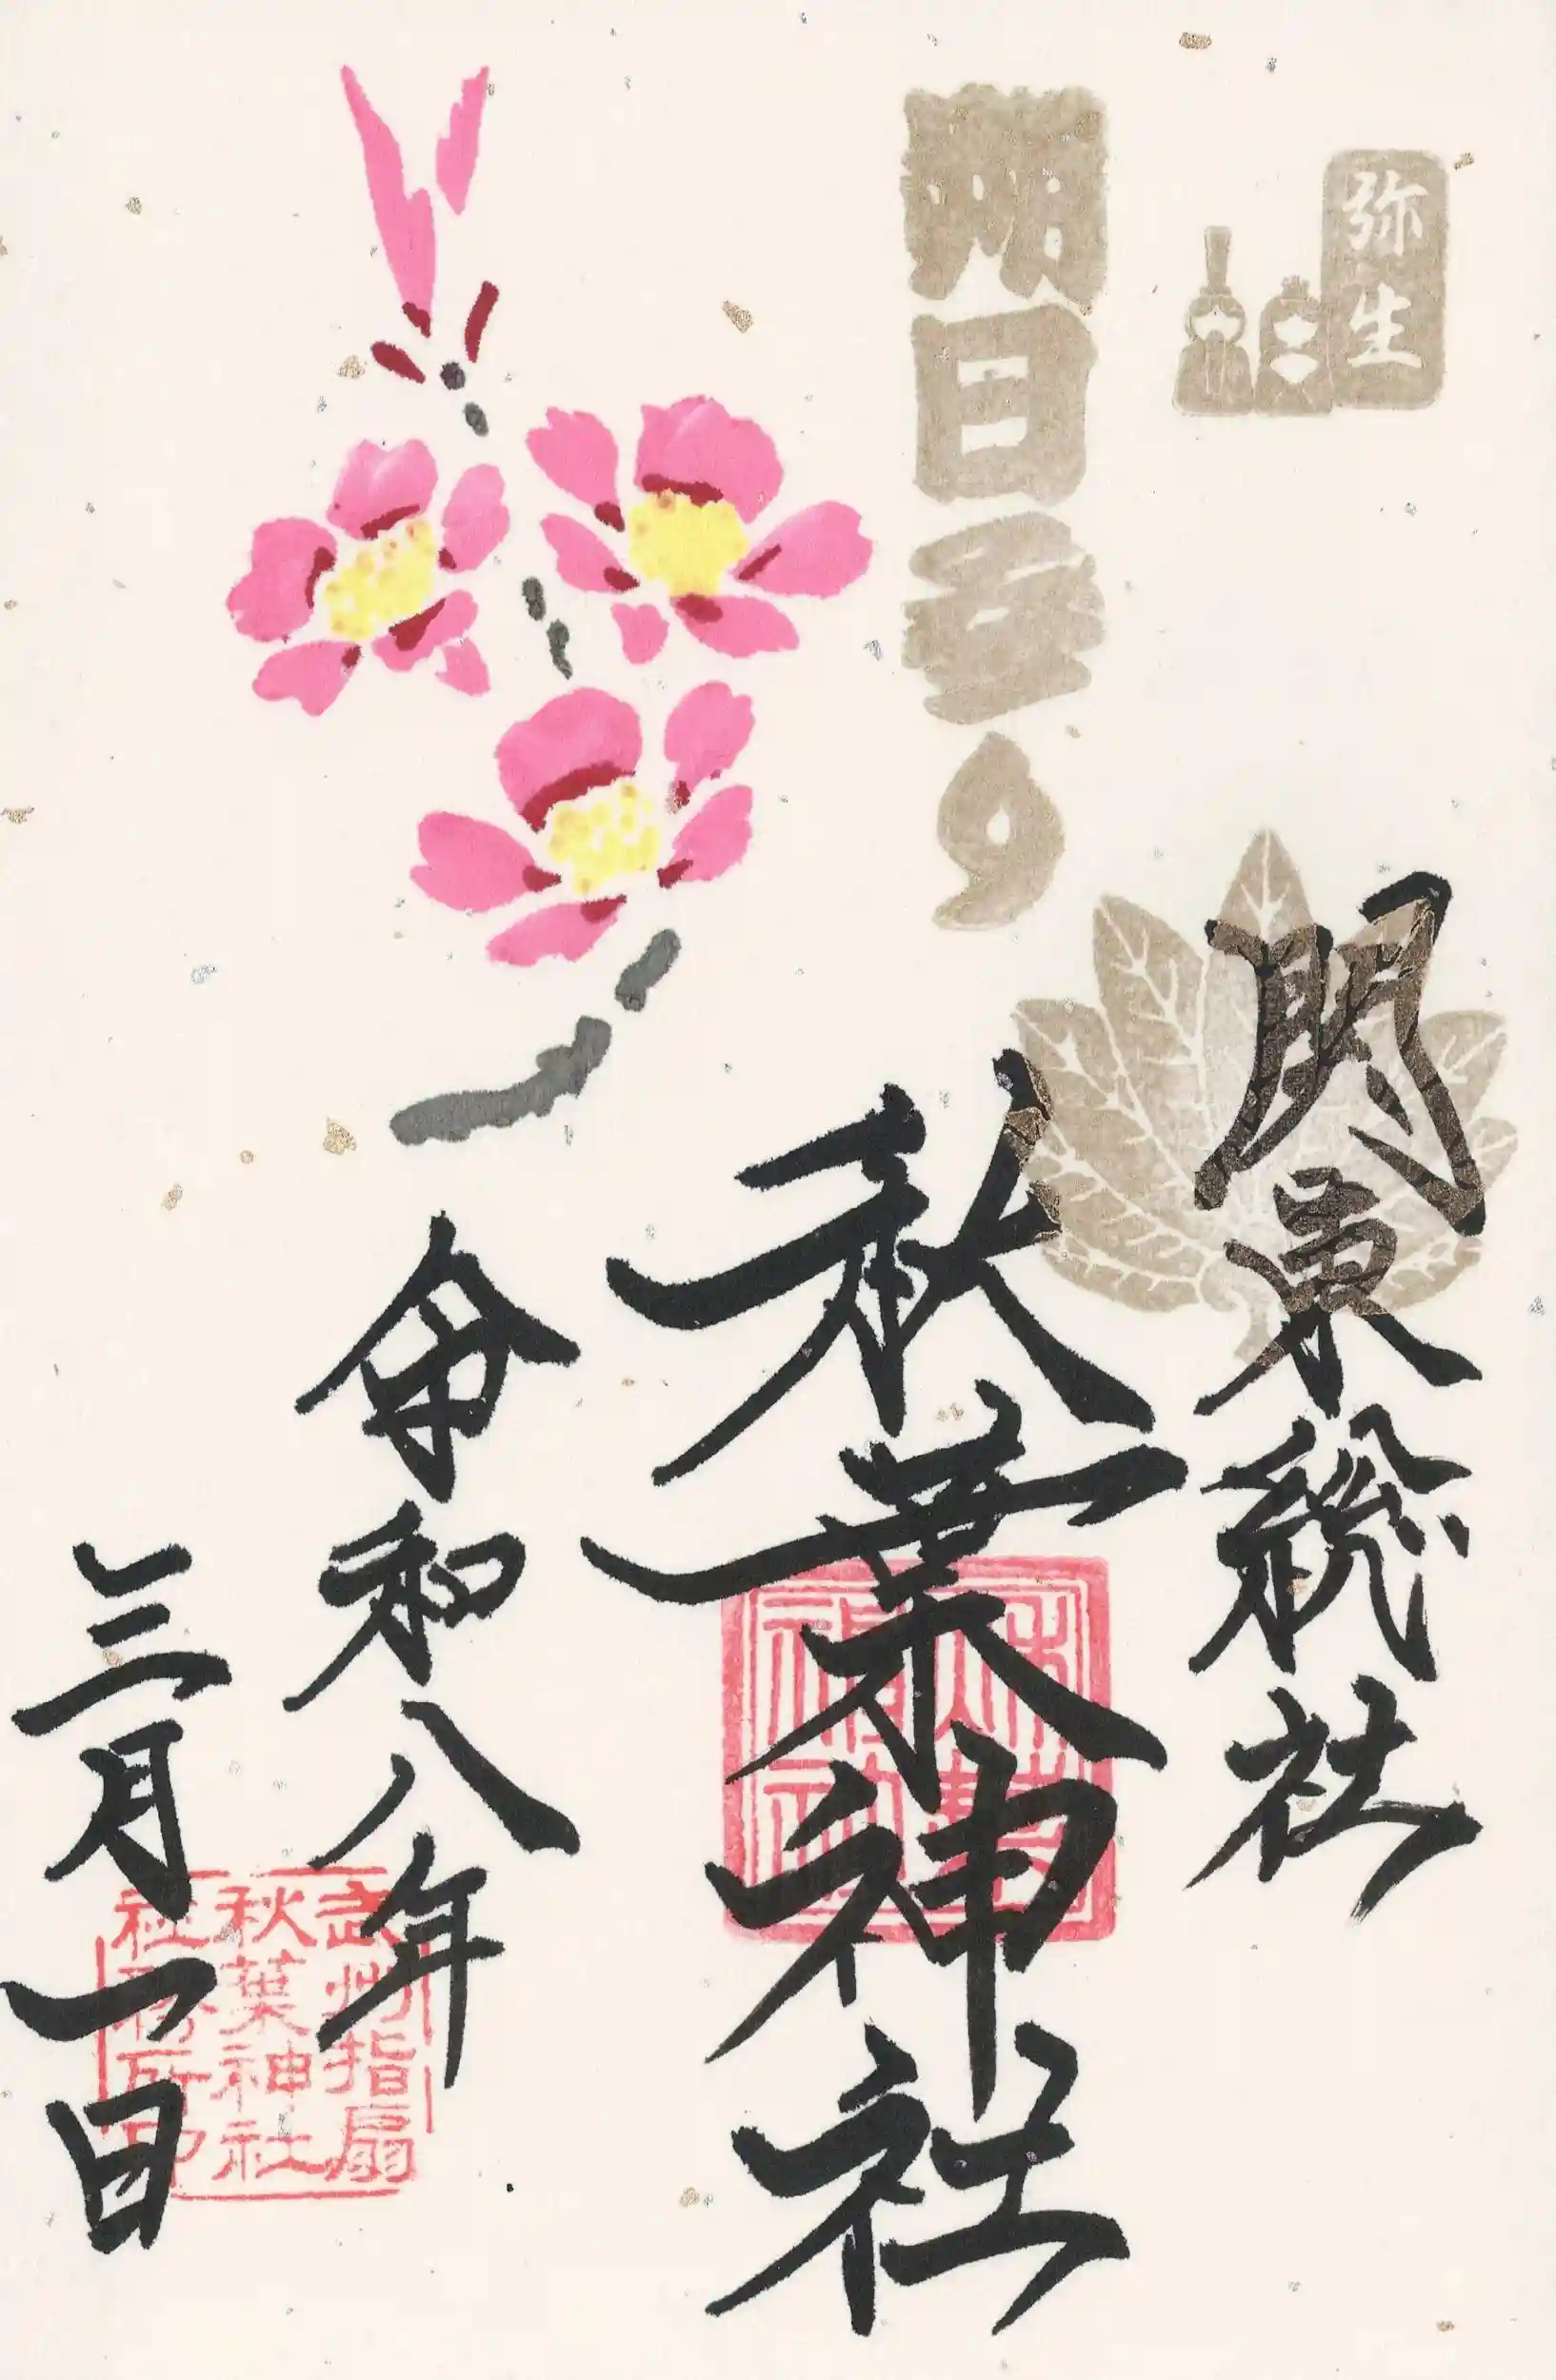 弥生
朔日参り
関東総社
秋葉神社
令和八年
三月一日
武州指扇
秋葉神社
社務所印